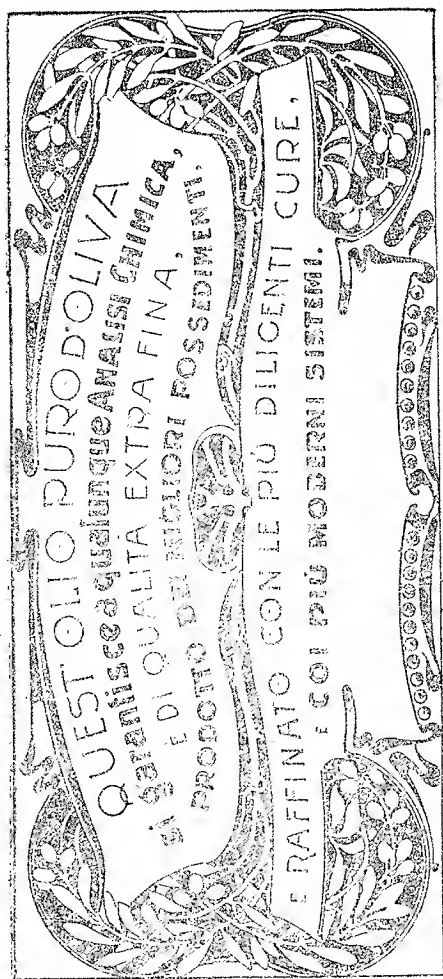 QUEST'OLIO PURO D'OLIVA
si garantisce a qualunque ANALISI CHIMICA,
È DI QUALITÀ EXTRA FINA,
PRODOTTO DEI MIGLIORI POSSEDIMENTI,
E RAFFINATO CON LE PIÙ DILIGENTI CURE,
E COI PIÙ MODERNI SISTEMI.